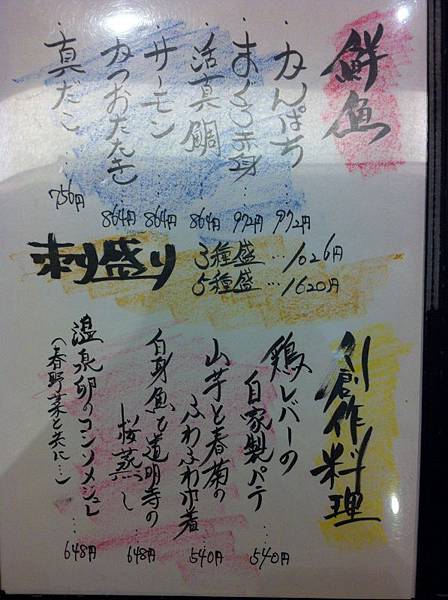 鮮魚
・かんぱち…972円
・まぐろ赤身…972円
・活真鯛…864円
・サーモン…864円
・かつおたたき…864円
・真だこ…756円
刺盛り
3種盛…1026円
5種盛…1620円
創作料理
鶏レバーの
自家製パテ…540円
山芋と春菊の
ふわふわ巾着…540円
白身魚と道明寺の
桜蒸し…648円
温泉卵のコンソメジュレ…648円
(春野菜と共に…)